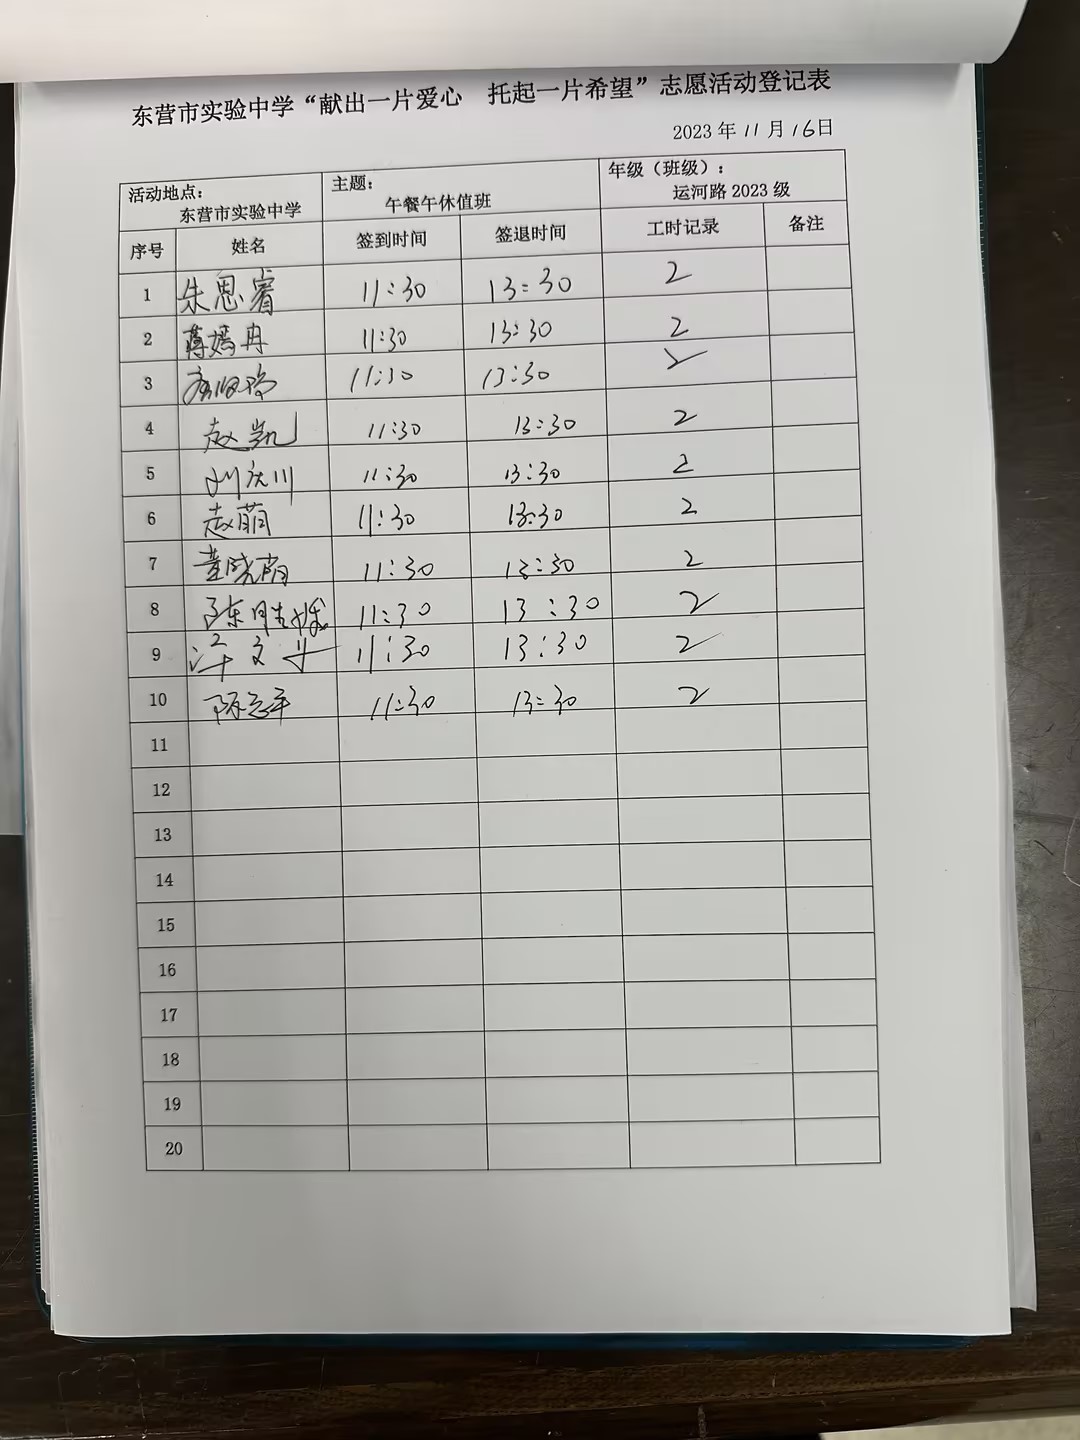 东营市实验中学“献出一片爱心 托起一片希望”志愿活动登记表
2023 年 11 月 16日
活动地点: 主题: 年级（班级）:
东营市实验中学 午餐午休值班 运河路 2023 级
序号 姓名 签到时间 签退时间 工时记录 备注
1 朱思睿 11:30 13:30 2
2 蒋嫣冉 11:30 13:30 2
3 11:30 13:30 2
4 赵凯 11:30 13:30 2
5 刘庆川 11:30 13:30 2
6 赵萌 11:30 13:30 2
7 董晓萌 11:30 13:30 2
8 陈胜娥 11:30 13:30 2
9 11:30 13:30 2
10 陈志平 11:30 13:30 2
11
12
13
14
15
16
17
18
19
20